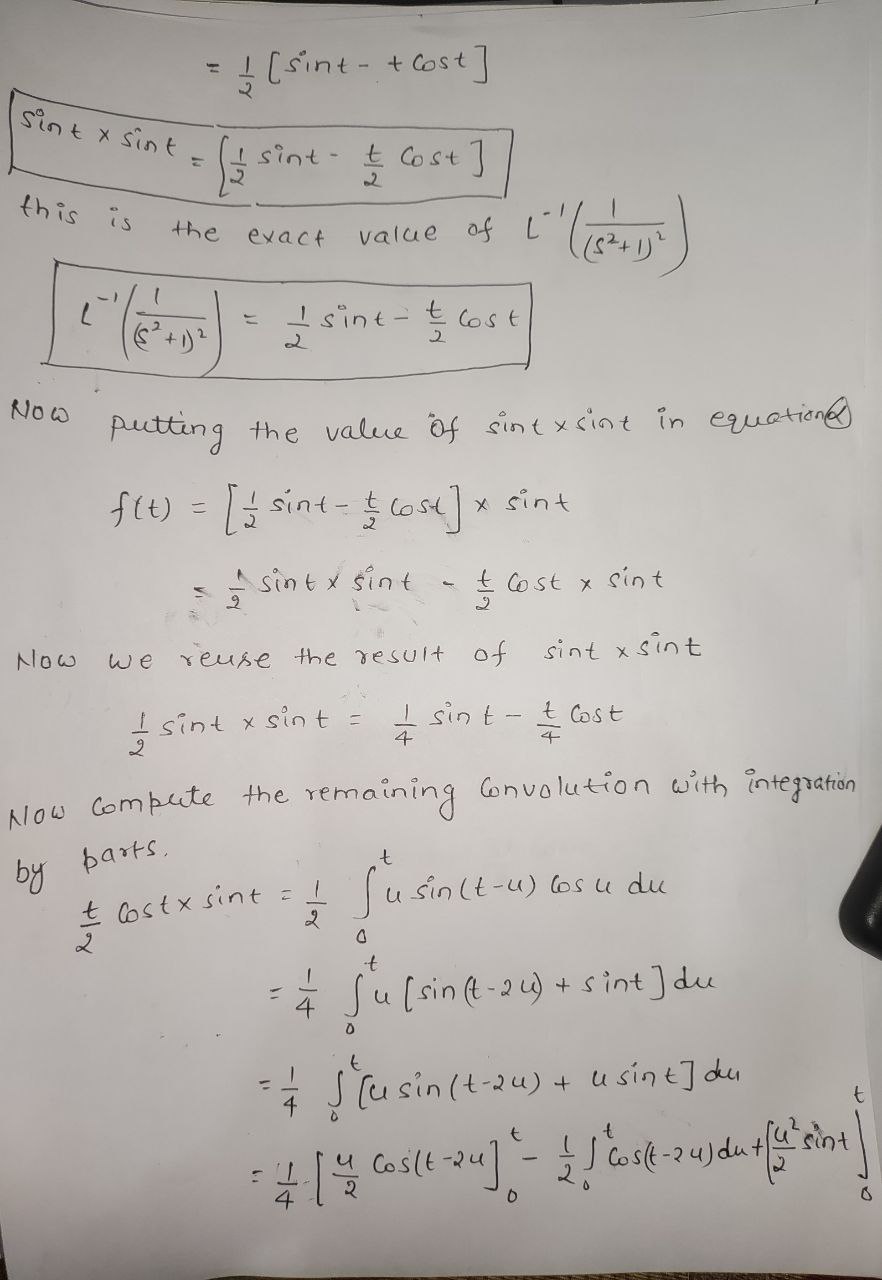 = 1/2 [sint - t Cost]
sint x sint = [1/2 sint - t/2 Cost]
this is the exact value of L⁻¹(1/(s²+1)²)
L⁻¹(1/(s²+1)²) = 1/2 sint - t/2 Cost
Now putting the value of sint x sint in equation②
f(t) = [1/2 sint - t/2 Cost] x sint
= 1/2 sint x sint - t/2 Cost x sint
Now we reuse the result of sint x sint
1/2 sint x sint = 1/4 sint - t/4 Cost
Now Compute the remaining Convolution with integration
by parts.
t/2 Cost x sint = 1/2 ∫₀ᵗ u sin(t-u) Cos u du
= 1/4 ∫₀ᵗ u [sin(t-2u) + sint] du
= 1/4 ∫₀ᵗ [u sin(t-2u) + u sint] du
= 1/4 [u/2 Cos(t-2u]₀ᵗ - 1/2 ∫₀ᵗ Cos(t-2u)du + [u²/2 sint]₀ᵗ